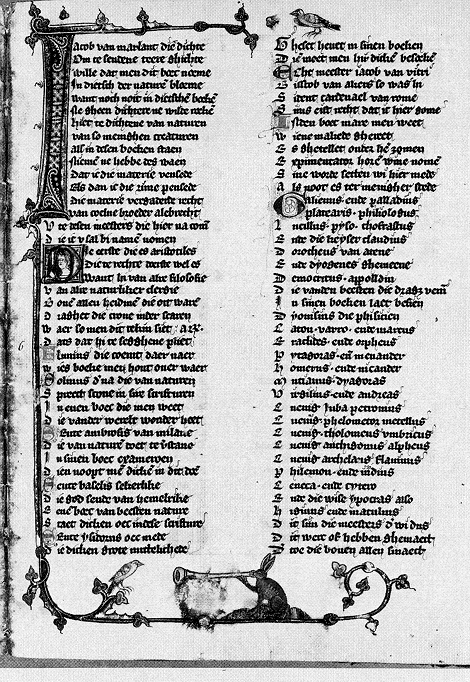 Jacob van marlant die dichte
Om te sendene teere ghichte
wille dat men dit boec noeme
In dietsch der nature bloeme
want noch noit in dietschen boeken
Ne gheen dichtere ne wilde roeken
hiet te dichtene van naturen
van so menghen creaturen
als in desen boeken staen
Niemē ne hebbe des waen
dat ic die materie vensede
Els dan ic die rime pensede
die materie vergaderde recht
van coelne broeder alebrecht
v te desen meesters die hier na comē
D ie ic v sal bi namē nomen
Die eerste dies aristotiles
Die te rechte deerste wel es
Want hi van alre filosofie
V an alre naturliker clergie
B ouē allen heidinē die oit ware
D raghet die crone inder scaren
W aer so men dit tekin siet ar.
D ats dat hi te segghene pliet
plinius die coemt daer naer
W ies boeke men hout over waer
Solinus dna die van naturen
S preect scone in sire scrifturen
I n enen boec die men weet
D ie vander werelt wonder heet
Sente ambrosis van milane
D ie van naturē doet te verstane
I n sinen boec exameroen
D ien noopt mē dickē in dit doē
Sente baselis sekerlike
D ie god sende van hemelrike
E enē boec van beesten nature
S taet dicken oec indese scrifture
Sente ysidorus oec mede
D ie dicken grote nuttelichede
G heset hevet in sinen boeken
D ie moet men hier dickē besoekē
Echt meester iacob van vitri
B isscop van akers so was hi
S ident cardenael van rome
E nnes echt recht dat ic hier gome
isten boec mare men weet
W iene maliede ghereet
E s ghesellet onder hē somen
E xperimentator horic wine nomē
S ine worde setten wi hier mede
A ls noot es ter menigher stede
Galienus ende palladius
platearis philiologus
L ucillus pyso theofrastus
E nde die keyser claudius
D orotheus van atene
E nde dyogenes
D emocritus appollidin
D ie vanden beesten die draghē venī
I n sinen boeken laet besien
D yonisius die phisicien
C aton varro ende marcus
E raclides ende orpheus
P ytagoras eñ menander
H omerus ende nicander
M ucianus dyagoras
V irgilius ende andreas
E nenig Juba petronius
E nenig phelometor metellus
E nenig tholomeus umbricus
E nenig anthigonus alpheus
E nenig archelaus flaminus
P hilemon ende
S eneca ende cytero
E nde die wise ypocras also
H iginus ende mataluus
D it sijn die meesters
D ie werc of hebben ghemaect
D ie bouen allen smaect